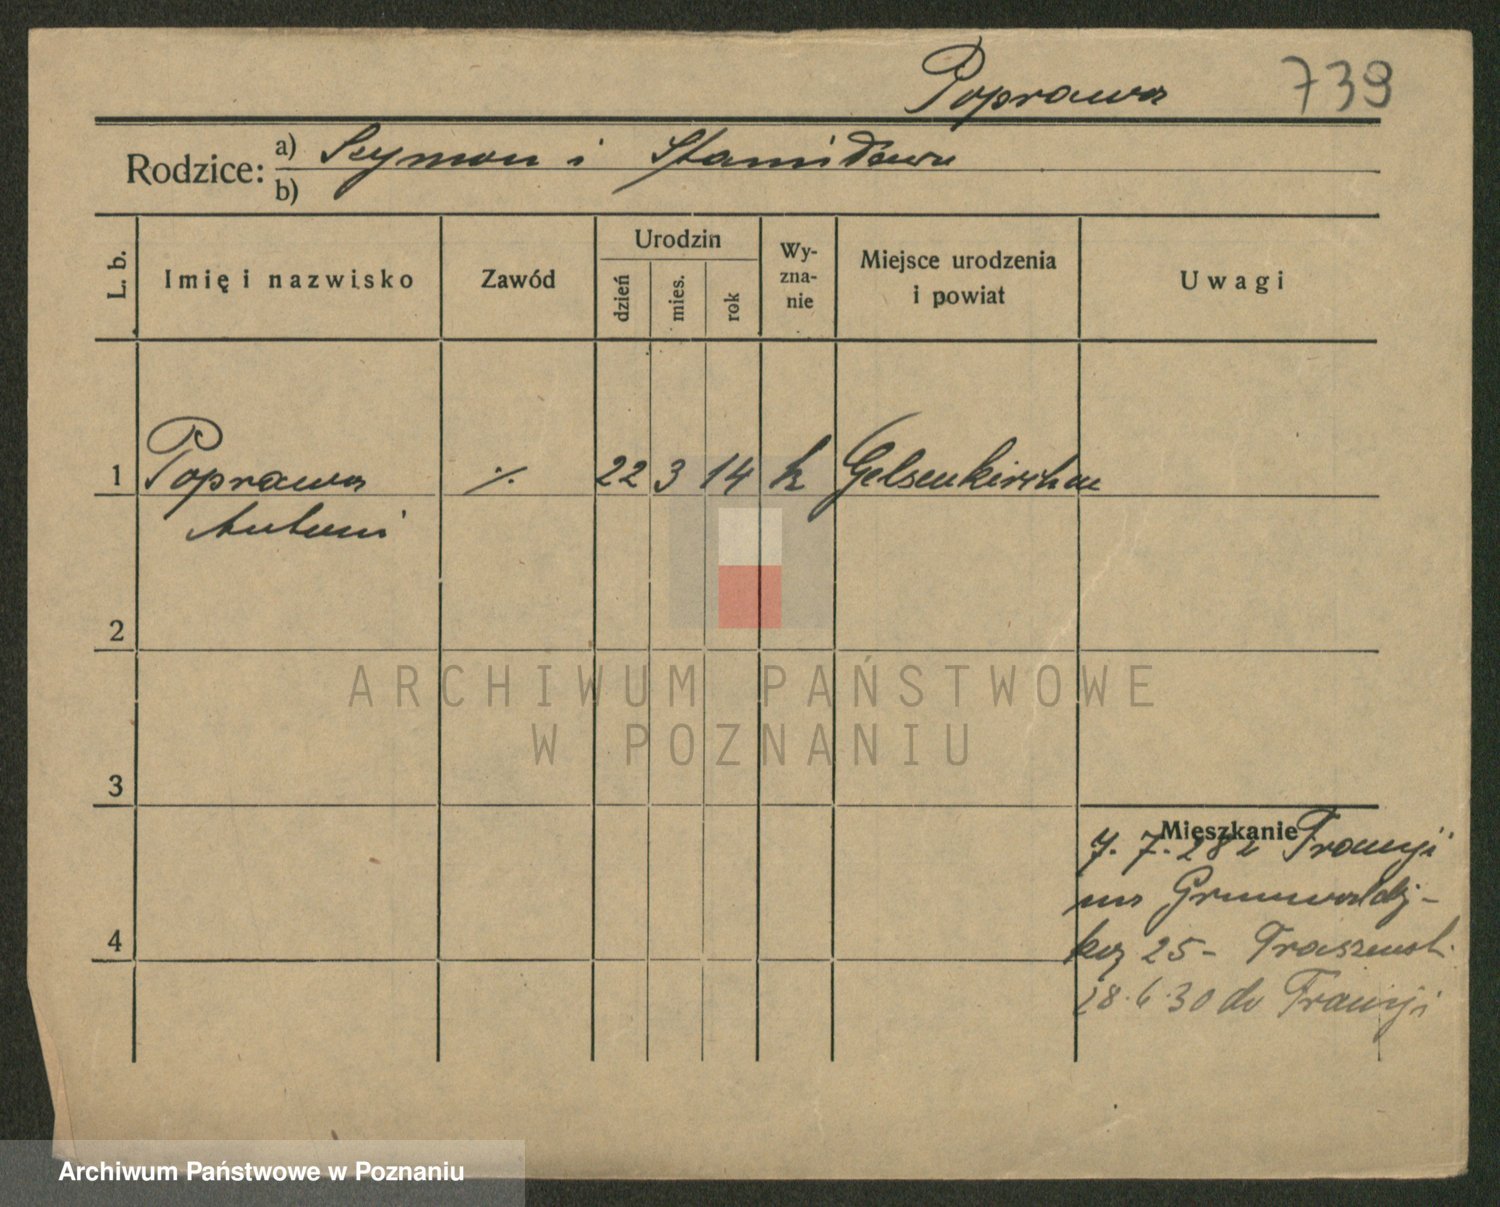 Poprawa 739
Rodzice: a) Szymon i Stanisława
b)
L. b. Imię i nazwisko Zawód Urodzin dzień mies. rok Wy-zna-nie Miejsce urodzenia i powiat Uwagi
1 Poprawa ./. 22 3 14 k Gelsenkirchen
Antoni
2
ARCHIWUM PAŃSTWOWE
W POZNANIU
3
Mieszkanie
7. 7. 28 z Francji
na Grunwaldz-
ką 25-
4
28.6.30 do Francji
Archiwum Państwowe w Poznaniu